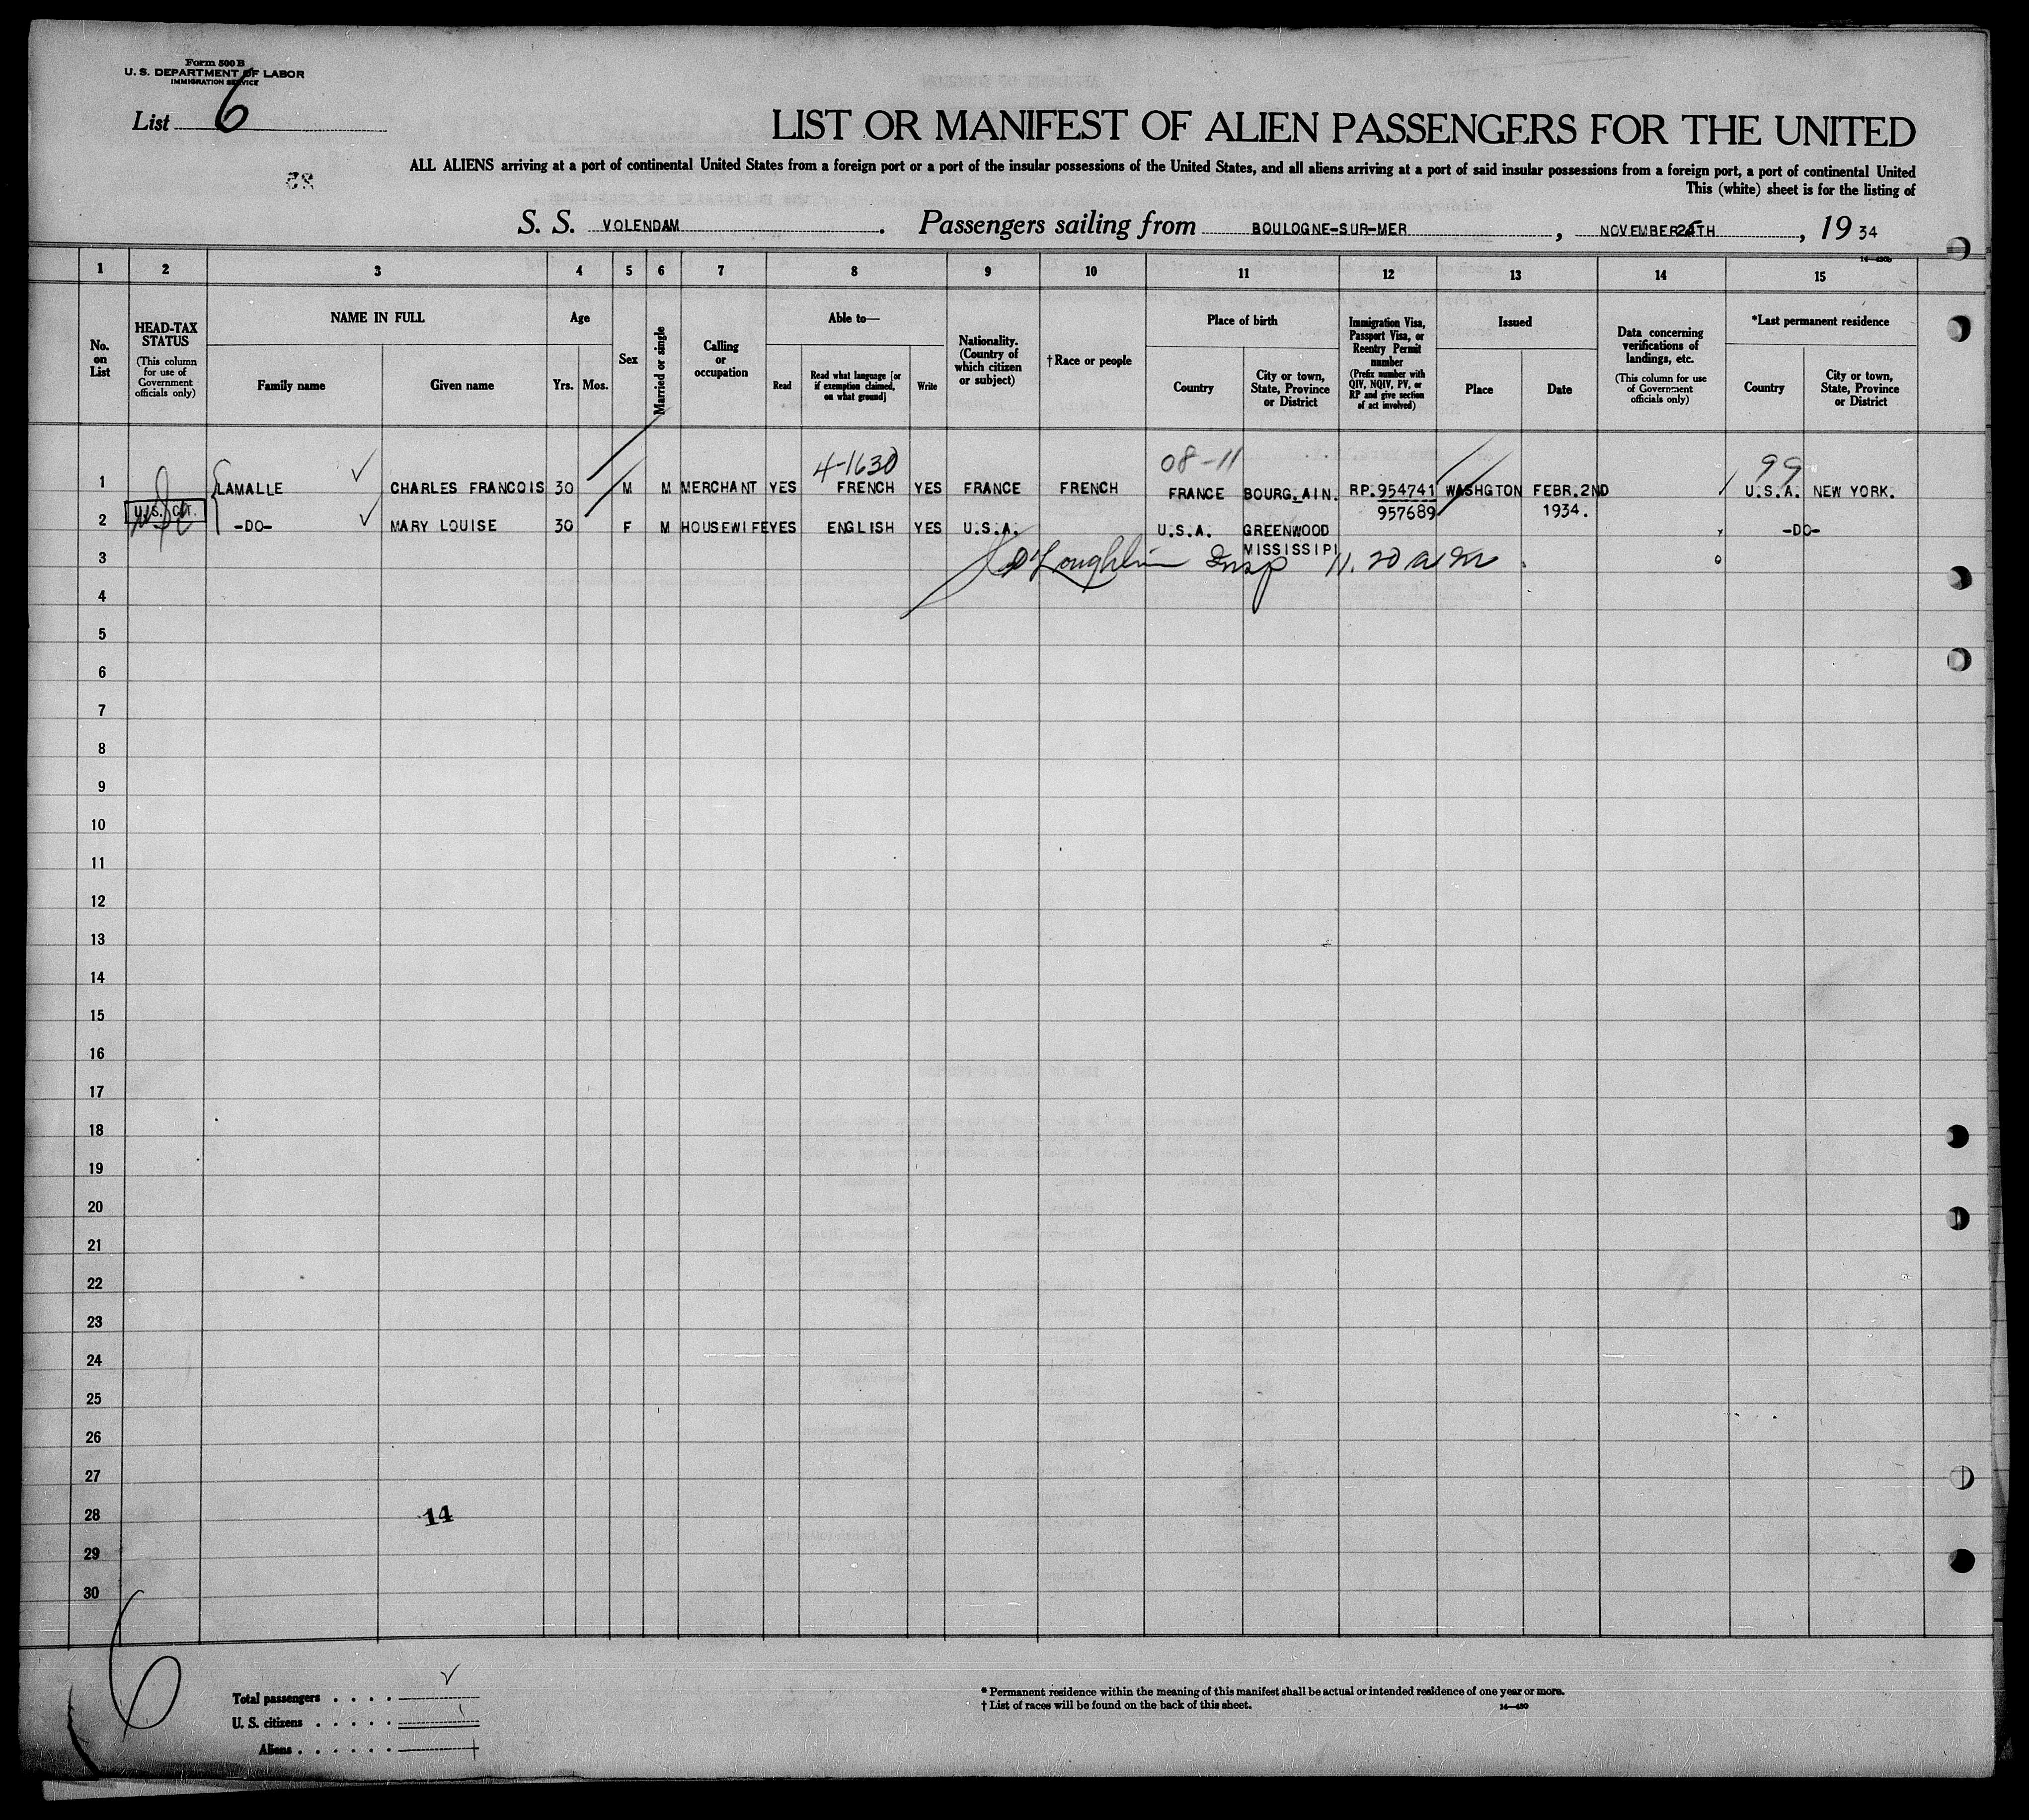 Form 500 B
U. S. DEPARTMENT OF LABOR
IMMIGRATION SERVICE
List 6
LIST OR MANIFEST OF ALIEN PASSENGERS FOR THE UNITED
ALL ALIENS arriving at a port of continental United States from a foreign port or a port of the insular possessions of the United States, and all aliens arriving at a port of said insular possessions from a foreign port, a port of continental United
This (white) sheet is for the listing of
S. S. VOLENDAM. Passengers sailing from BOULOGNE-SUR-MER, NOVEMBER TH, 1934
14—430b
1 2 3 4 5 6 7 8 9 10 11 12 13 14 15
No. on List
HEAD-TAX STATUS
(This column for use of Government officials only)
NAME IN FULL
Family name
Given name
Age
Yrs.
Mos.
Sex
Married or single
Calling or occupation
Able to—
Read
Read what language [or if exemption claimed, on what ground]
Write
Nationality. (Country of which citizen or subject)
†Race or people
Place of birth
Country
City or town, State, Province or District
Immigration Visa, Passport Visa, or Reentry Permit number
(Prefix number with QIV, NQIV, PV, or RP and give section of act involved)
Issued
Place
Date
Data concerning verifications of landings, etc.
(This column for use of Government officials only)
*Last permanent residence
Country
City or town, State, Province or District
4-1630 08-11 99
1 LAMALLE CHARLES FRANCOIS 30 M M MERCHANT YES FRENCH YES FRANCE FRENCH FRANCE BOURG.AIN. RP.954741 WASHGTON FEBR.2ND U.S.A. NEW YORK.
957689 1934.
U.S. CIT.
2 -DO- MARY LOUISE 30 F M HOUSEWIFE YES ENGLISH YES U.S.A. U.S.A. GREENWOOD -DO-
MISSISSIPI
3 O'Loughlin Insp 11.20 am
4
5
6
7
8
9
10
11
12
13
14
15
16
17
18
19
20
21
22
23
24
25
26
27
28 14
29
30
6
Total passengers . . . .
U. S. citizens . . . . . 1
Aliens . . . . . . 1
* Permanent residence within the meaning of this manifest shall be actual or intended residence of one year or more.
† List of races will be found on the back of this sheet.
14—430